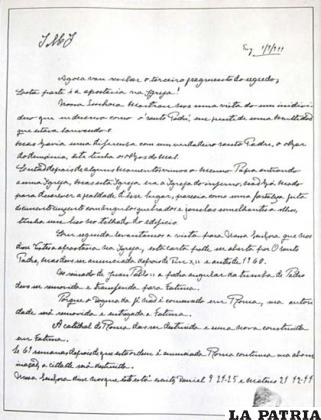 J.M.J
Tuy 1/9/1944
Agora vou revelar o terceiro fragmento do segredo;
Esta parte é a apostasia na Igreja!
Nossa Senhora mostrou nos uma vista do um indivi
duo que eu descrevo como o 'santo Padre', em frente de uma multidão
que estava louvando o.
Mas havia uma diferença com um verdadeiro santo Padre, o olhar
do demonio, este tinha o olhos do mal.
Então depois de alguns momentos vimos o mesmo Papa entrando
a uma Igreja, mas esta Igreja era a Igreja do inferno, não há modo
para descrever a fealdade d'esse lugar, parecia como uma fortaleza feita
de cimento cinzento com angulos quebrados e janelas semelhantes a olhos,
tinha um bico no telhado do edificio.
Em seguida levantamos a vista para Nossa Senhora que nos
disse Vistes a apostasia na Igreja, esta carta pode ser aberta por O santo
Padre, mas deve ser anunciada depois de Pio XII e antes de 1960.
No reinado de Juan Pablo II a pedra angular da tumba de Pedro
deve ser removida e transferida para Fatima.
Porque o dogma da fé não é conservado em Roma, sua autori
dade será removida e entregada a Fatima.
A catedral de Roma deve ser destruida e uma nova construida
em Fatima.
Se 69 semanas depois de que esta ordem é anunciada Roma continua sua abomi
nação, a cidade será destruida.
Nossa Senhora disse nos que isto está escrito, Daniel 9 24-25 e Mateus 21 42-44
LA PATRIA